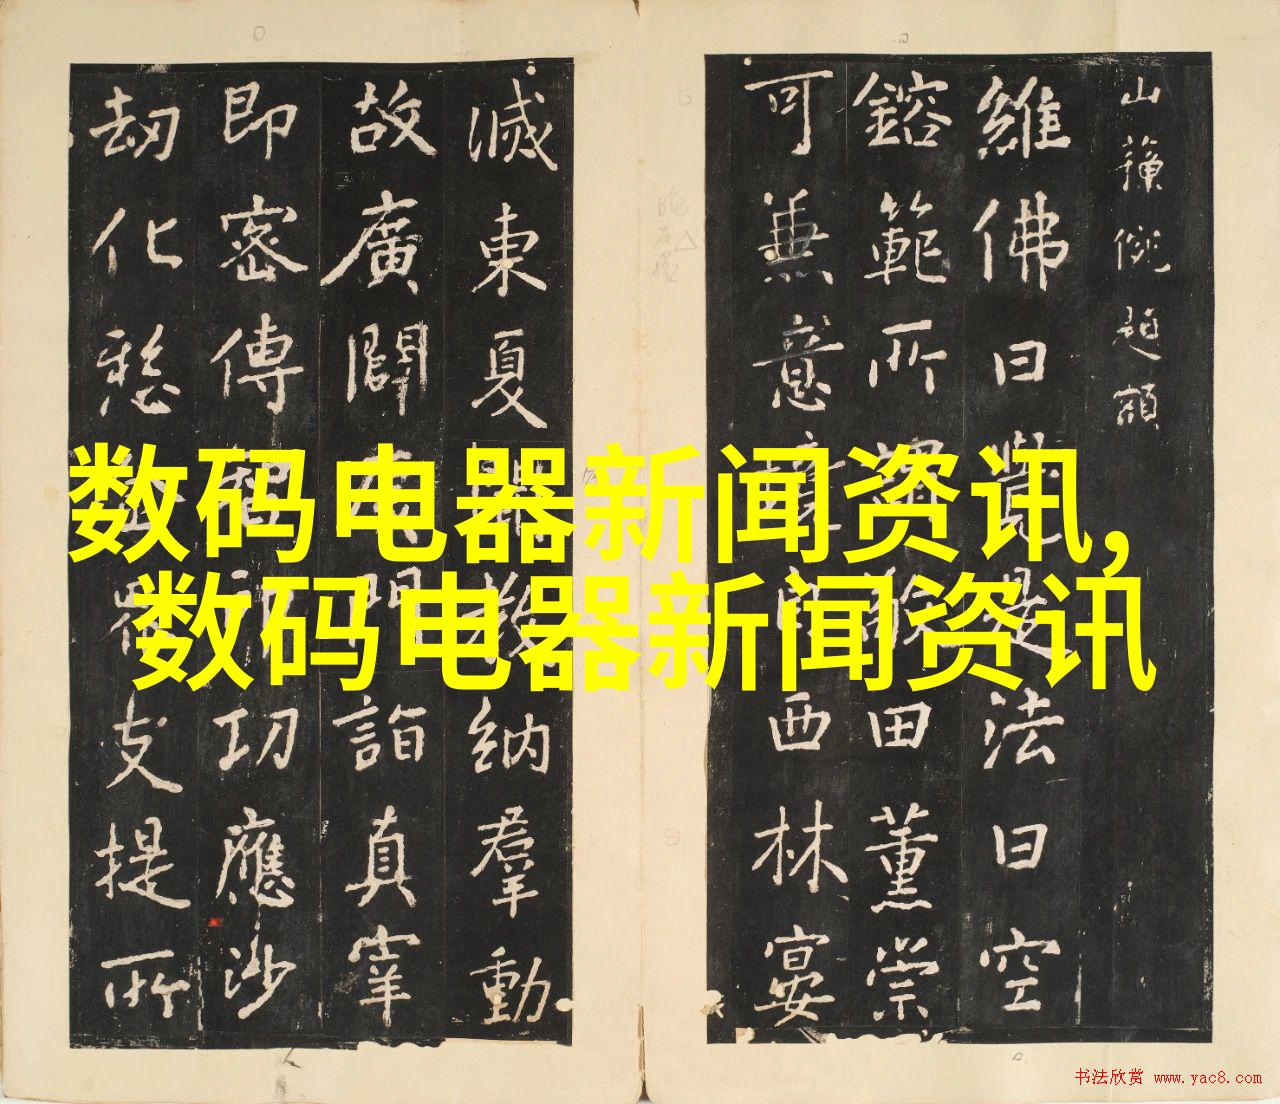 数码电器新闻资讯,
数码电器新闻资讯
山題額
維佛曰覺是法曰空
鎔範所田薰崇
可兼意西林宴
滅東夏教納羣動
故廣闢門詣真宰
即密傳印功應沙
劫化支提所
书法欣赏 www.yac8.com